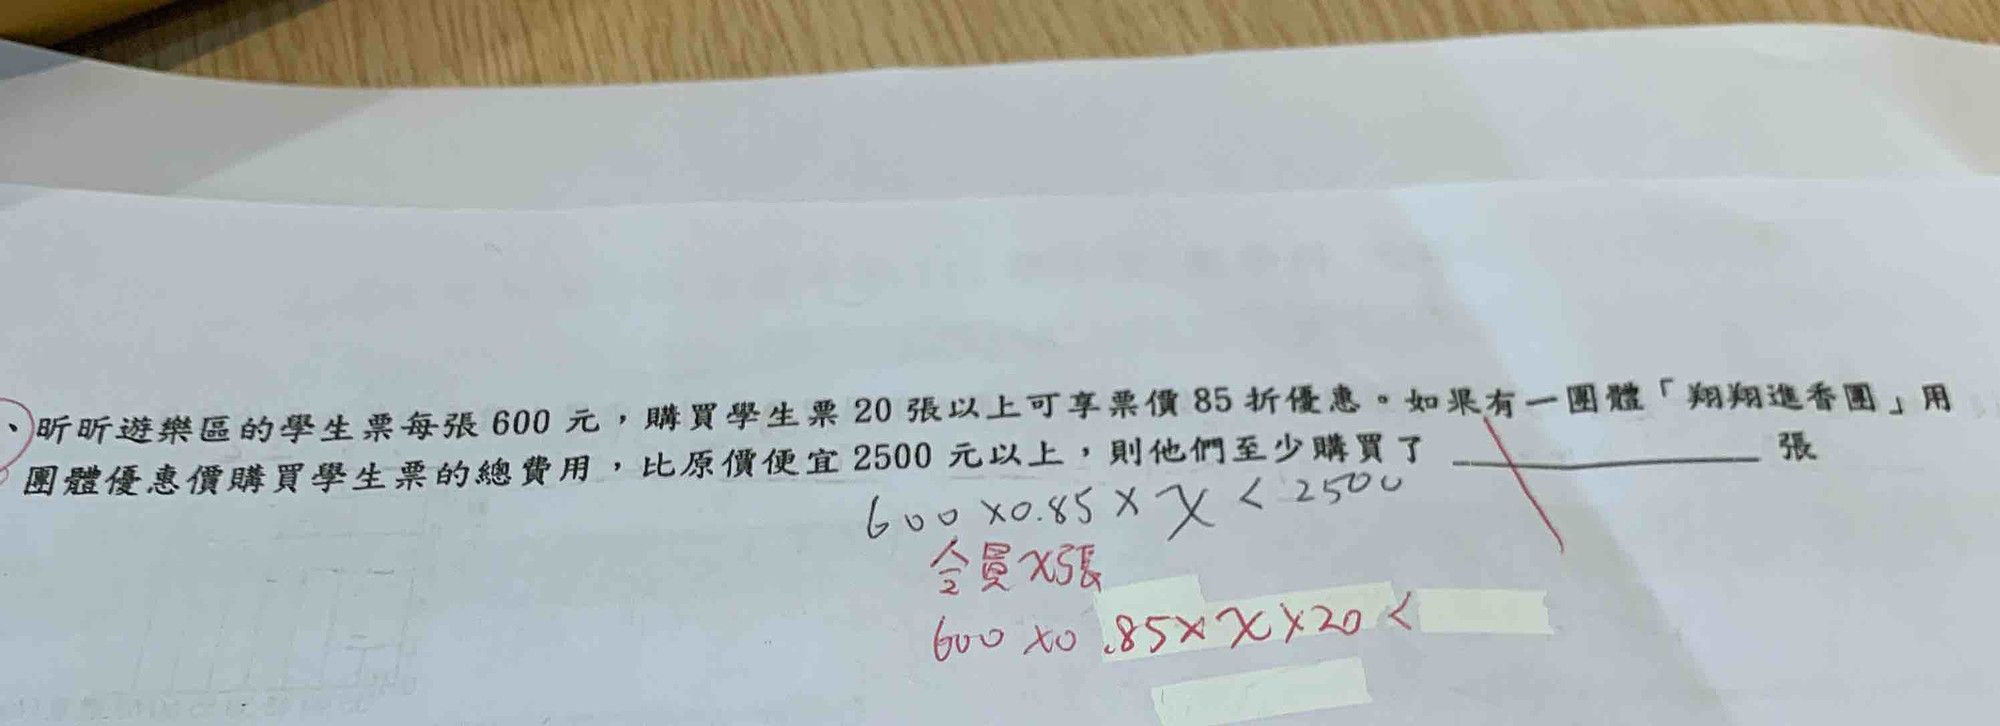 、昕昕遊樂區的學生票每張 600 元，購買學生票 20 張以上可享票價 85 折優惠。如果有一團體「翔翔進香團」用
團體優惠價購買學生票的總費用，比原價便宜 2500 元以上，則他們至少購買了 ＿＿＿＿＿＿ 張
600 ×0.85 × x < 2500
x張
600 ×0.85× x ×20 <